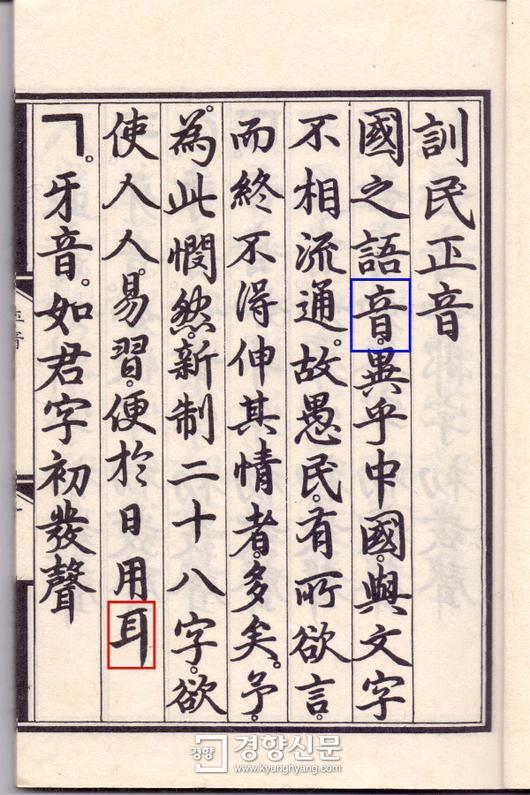 訓民正音
國之語音。異乎中國。與文字
不相流通。故愚民。有所欲言。
而終不得伸其情者。多矣。予。
為此憫然。新制二十八字。欲
使人人易習。便於日用耳
ㄱ。牙音。如君字初發聲
경향 경향신문
www.kyunghyang.com